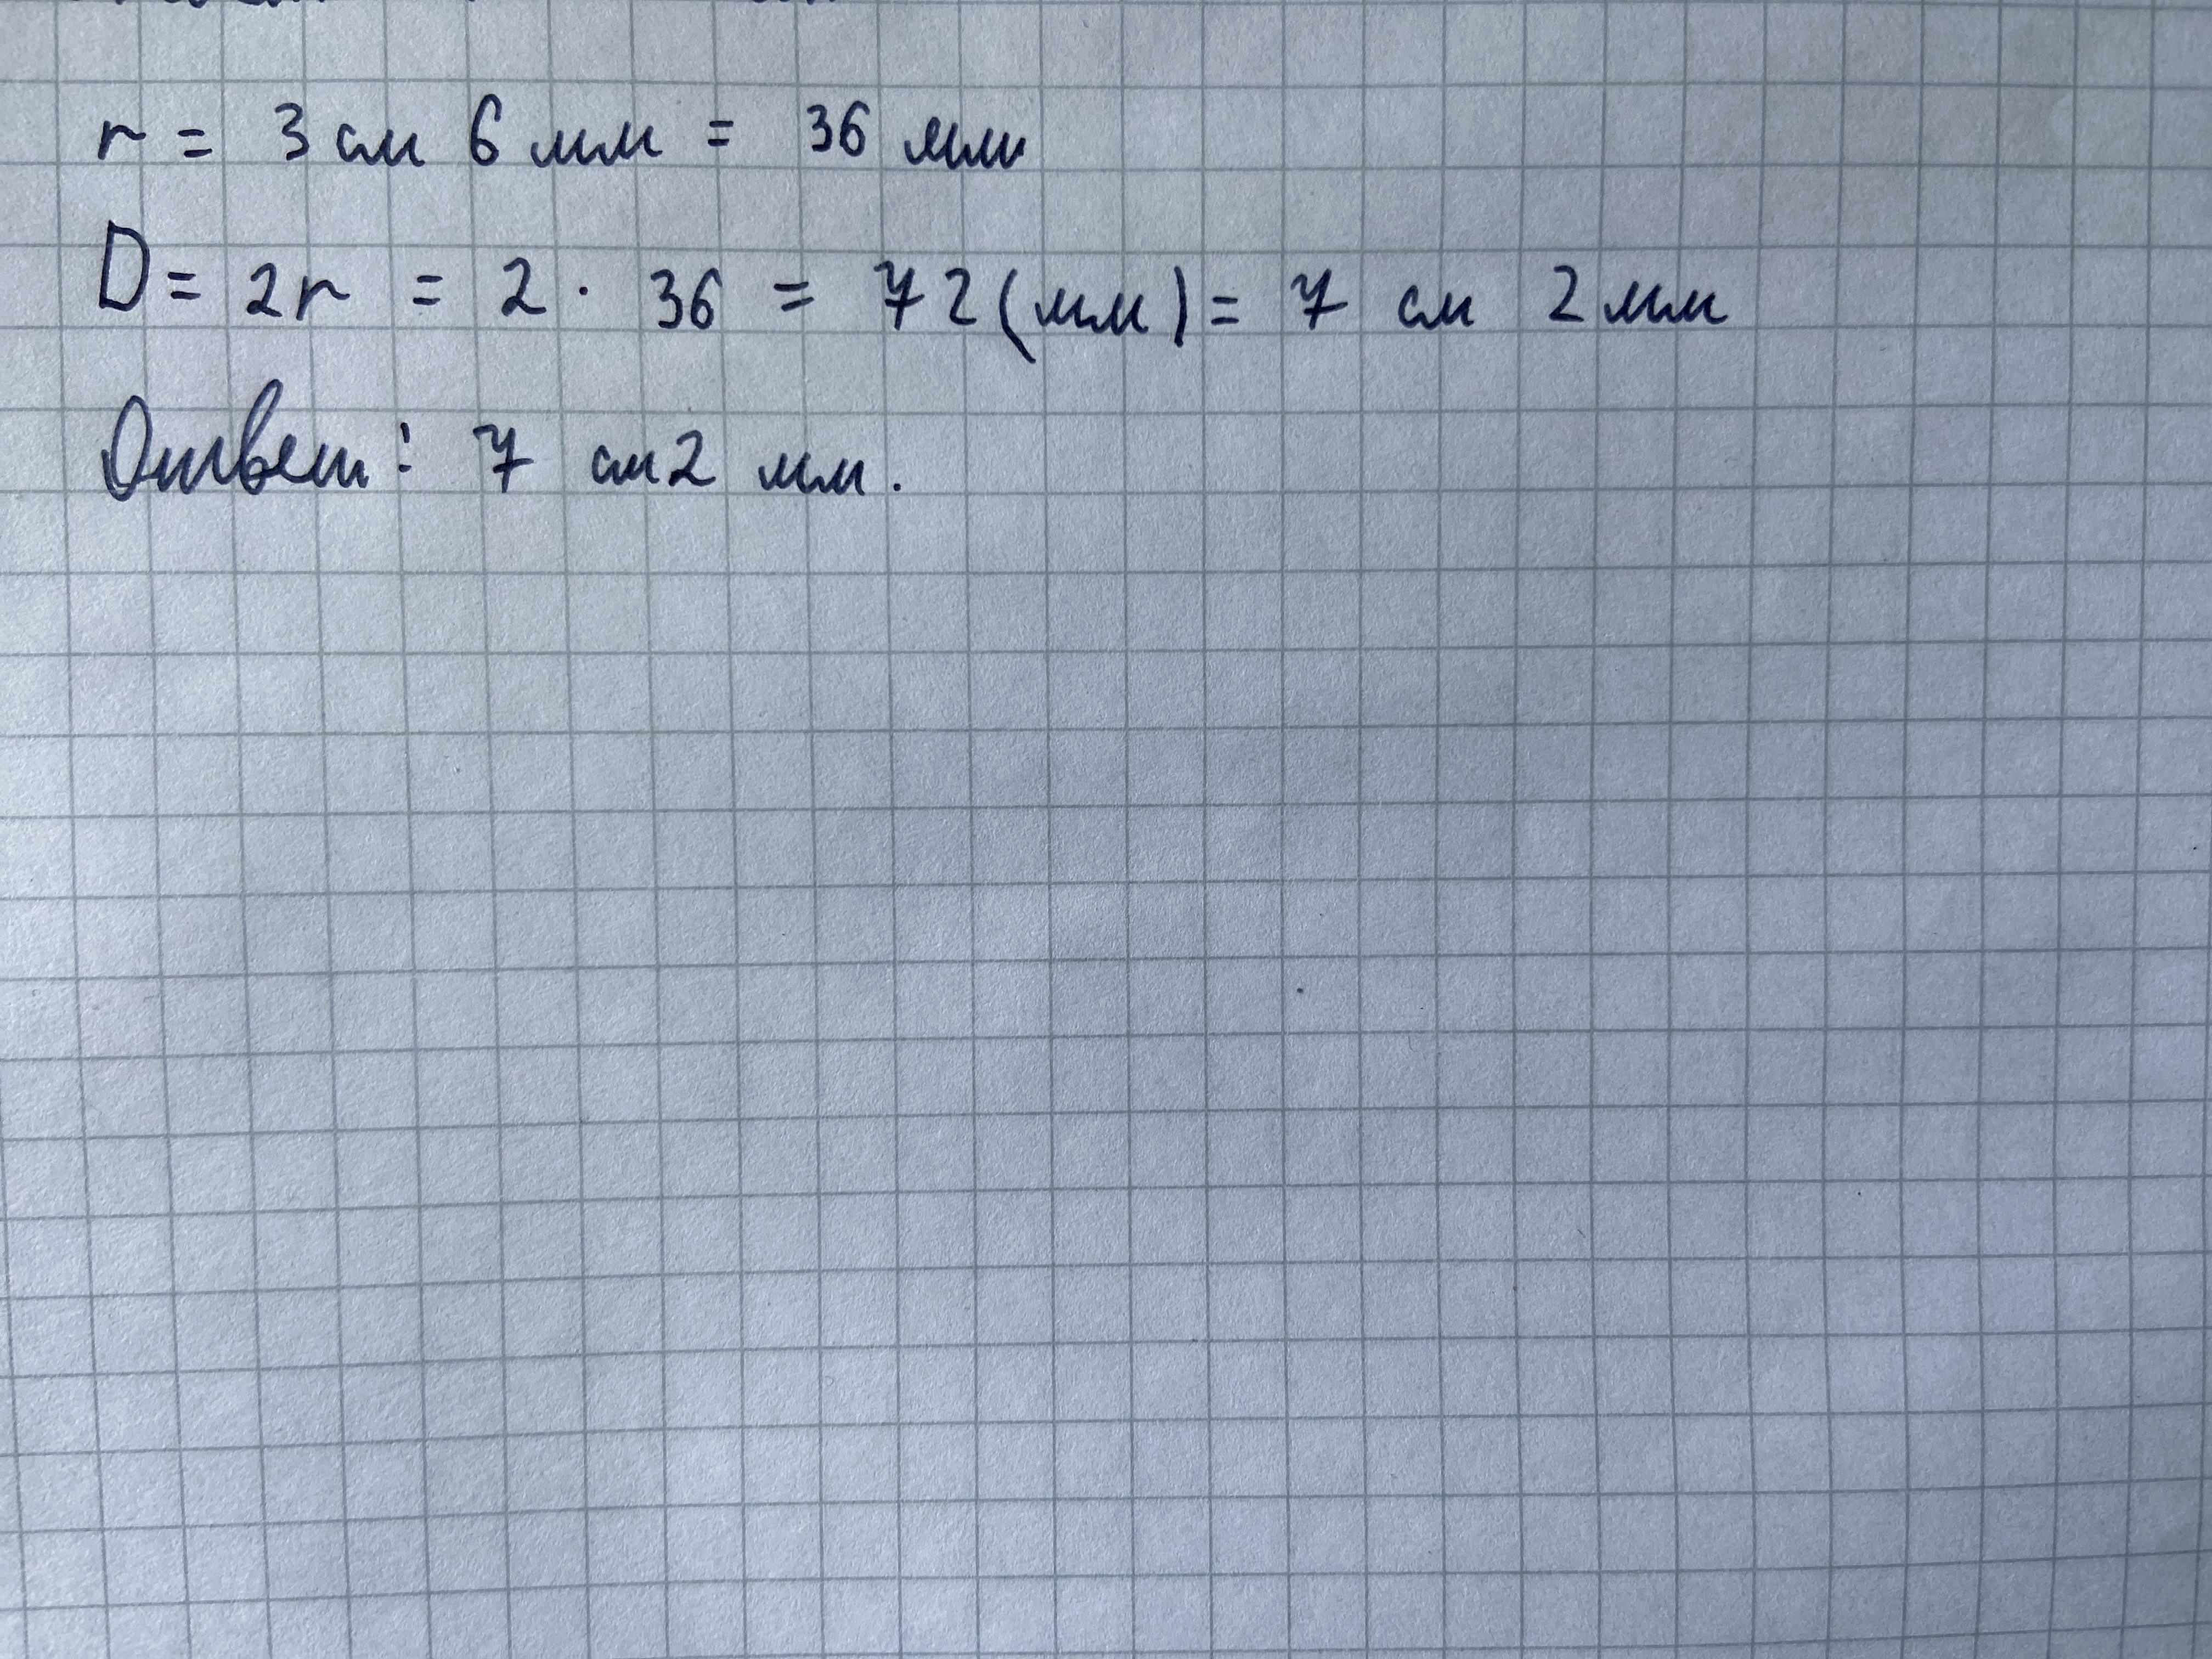 r = 3 см 6 мм = 36 мм
D = 2r = 2 · 36 = 72 (мм) = 7 см 2 мм
Ответ: 7 см 2 мм.